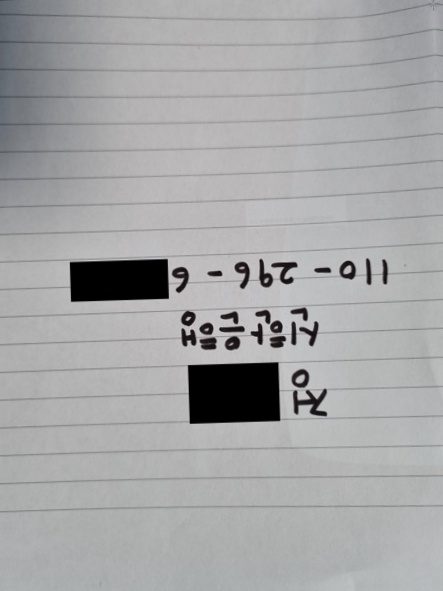 정
신한은행
110 - 296 - 6